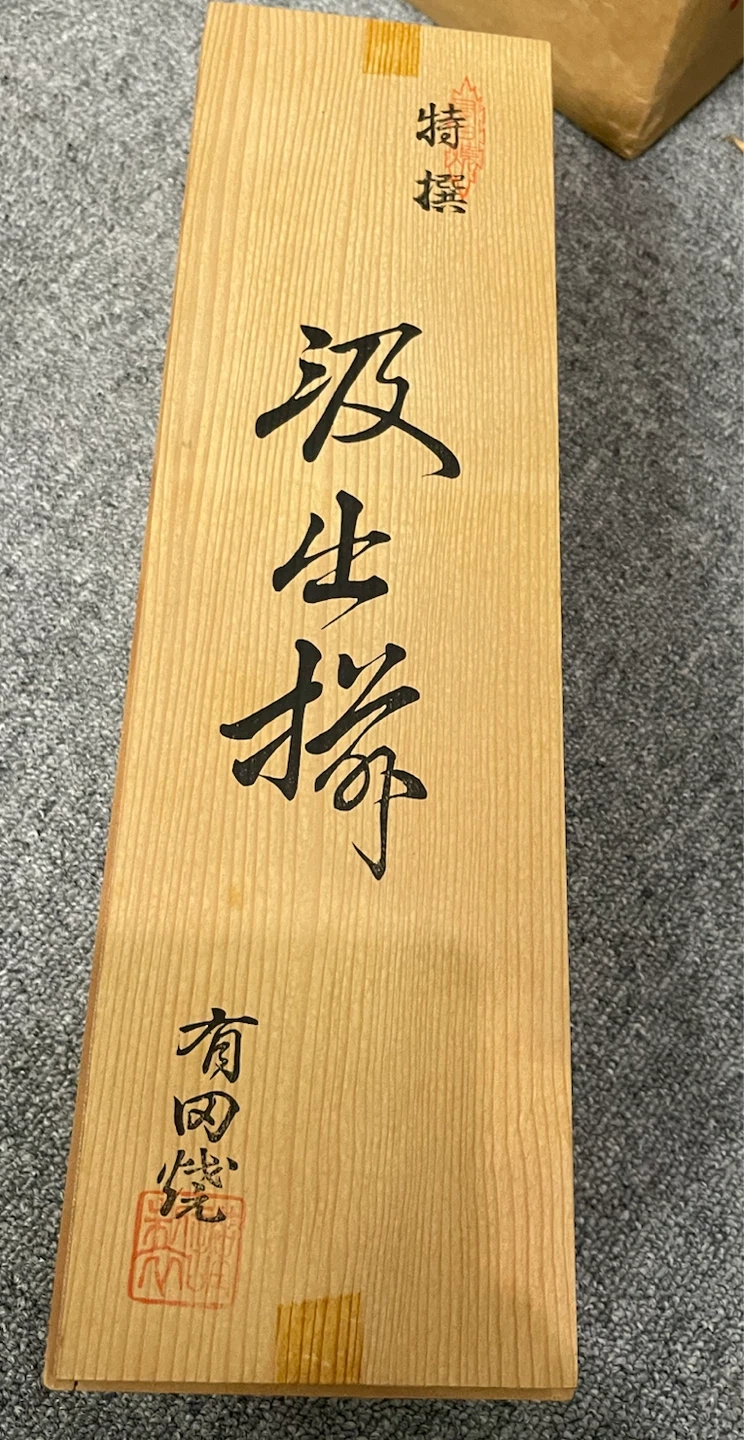 特撰
汲出揃
有田焼